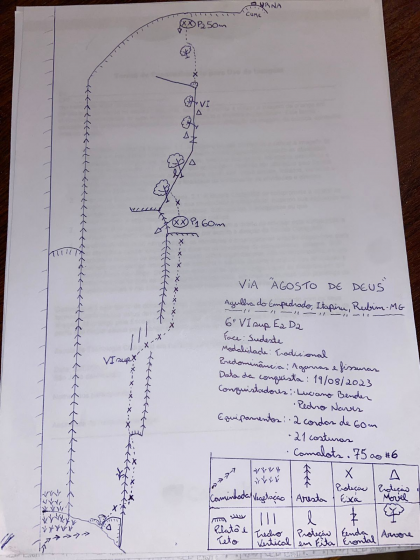 CUME
P2 50m
VI
P1 60m
VI sup
VIA "AGOSTO DE DEUS"
Agulha do Empedrado, Itapiru, Rubim-MG
6º VI sup E2 D2
Face: Sudeste
Modalidade Tradicional
Predominância: Agarras e fissuras
Data da conquista: 19/08/2023
Conquistadores: Luciano Bender
Pedro Naves
Equipamentos: • 2 cordas de 60m
• 21 costuras
• Camalots .75 ao #6
Caminhada
Vegetação
Aresta
Proteção Fixa
Proteção Móvel
Platô e Teto
Trecho Vertical
Proteção em Fita
Fenda Frontal
Árvore